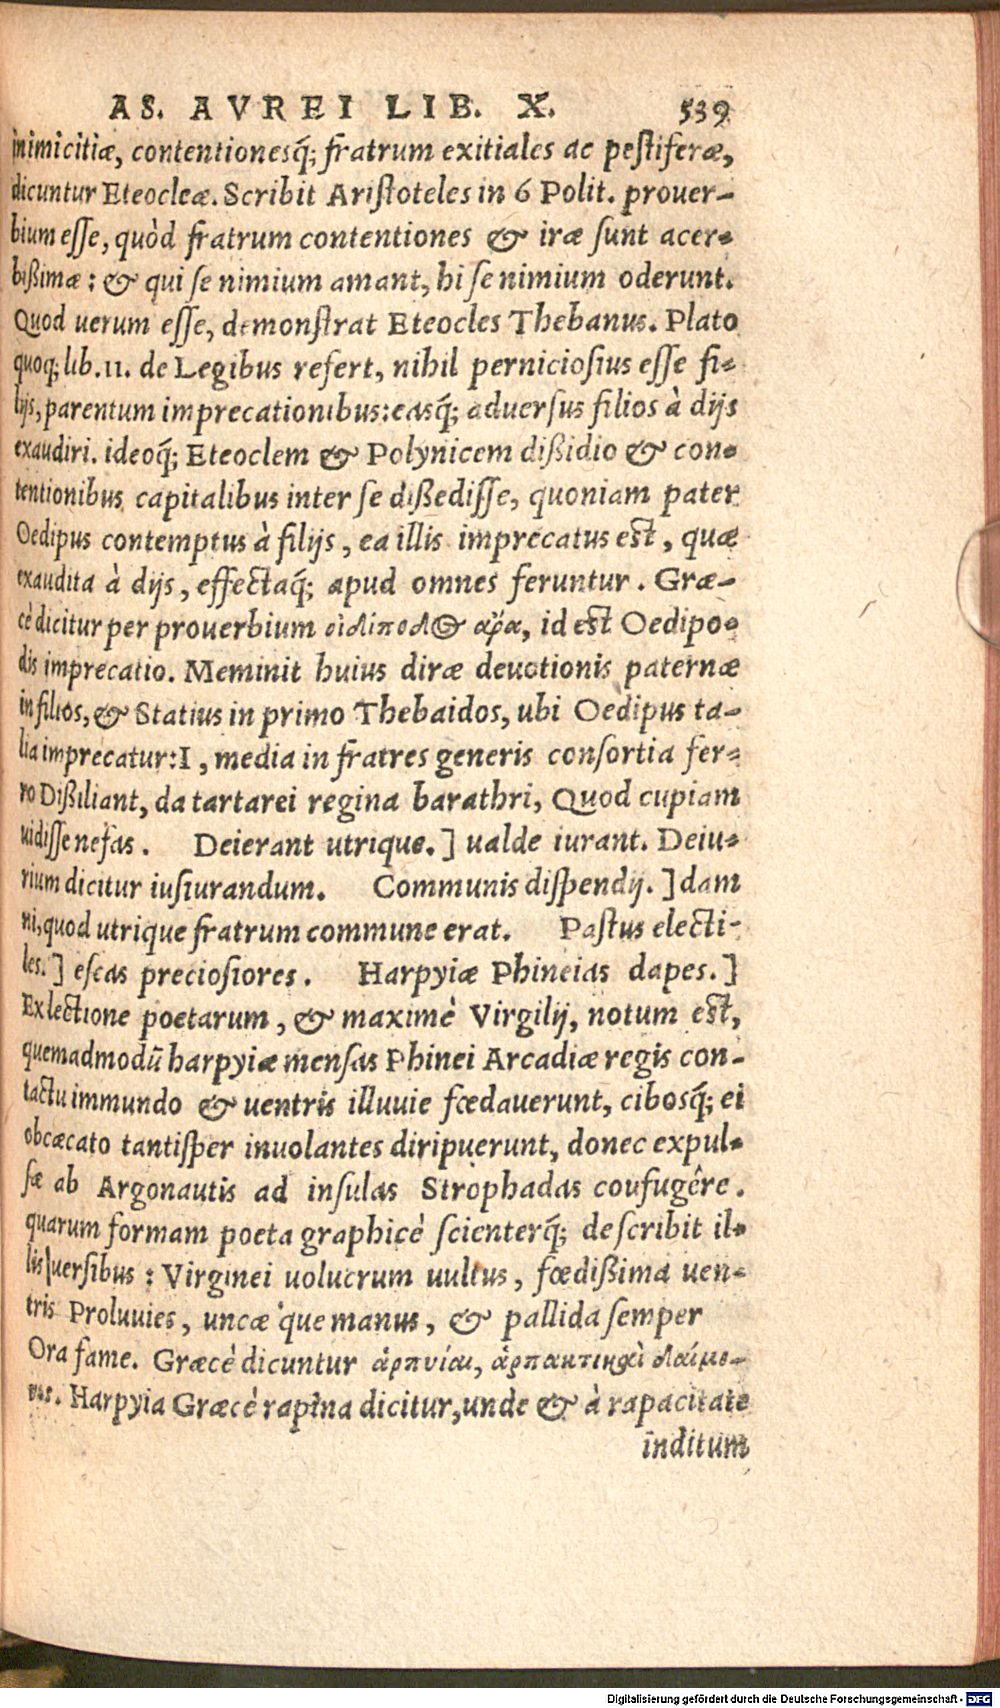 AS. AVREI LIB. X. 539
inimicitiæ, contentionesq́; fratrum exitiales ac pestiferæ,
dicuntur Eteocleæ. Scribit Aristoteles in 6 Polit. prouer-
bium esse, quòd fratrum contentiones & iræ sunt acer-
bißimæ: & qui se nimium amant, hi se nimium oderunt.
Quod uerum esse, demonstrat Eteocles Thebanus. Plato
quoq; lib. 11. de Legibus refert, nihil perniciosius esse fi-
lijs, parentum imprecationibus: easq́; aduersus filios à dijs
exaudiri. ideoq́; Eteoclem & Polynicem dißidio & con-
tentionibus capitalibus inter se dißedisse, quoniam pater
Oedipus contemptus à filijs, ea illis imprecatus est, quæ
exaudita à dijs, effectaq́; apud omnes feruntur. Græ-
cè dicitur per prouerbium οἰδίποδος ἀρα, id est Oedipo-
dis imprecatio. Meminit huius diræ deuotionis paternæ
in filios, & Statius in primo Thebaidos, ubi Oedipus ta-
lia imprecatur: I, media in fratres generis consortia fer-
ro Dißiliant, da tartarei regina barathri, Quod cupiam
uidisse nefas. Deierant utrique.] ualde iurant. Deiu-
rium dicitur iusiurandum. Communis dispendij.] dam
ni, quod utrique fratrum commune erat. Pastus electi-
les.] escas preciosiores. Harpyiæ Phineias dapes.]
Ex lectione poetarum, & maximè Virgilij, notum est,
quemadmodū harpyiæ mensas Phinei Arcadiæ regis con-
tactu immundo & uentris illuuie fœdauerunt, cibosq́; ei
obcæcato tantisper inuolantes diripuerunt, donec expul-
sæ ab Argonautis ad insulas Strophadas coufugêre.
quarum formam poeta graphicè scienterq́; describit il-
lis uersibus: Virginei uolucrum uultus, fœdißima uen-
tris Proluuies, uncæ que manus, & pallida semper
Ora fame. Græcè dicuntur ἁρπυίαι, ἁρπακτικαὶ δαίμο-
νες. Harpyia Græcè rapina dicitur, unde & à rapacitate
inditum
Digitalisierung gefördert durch die Deutsche Forschungsgemeinschaft - DFG